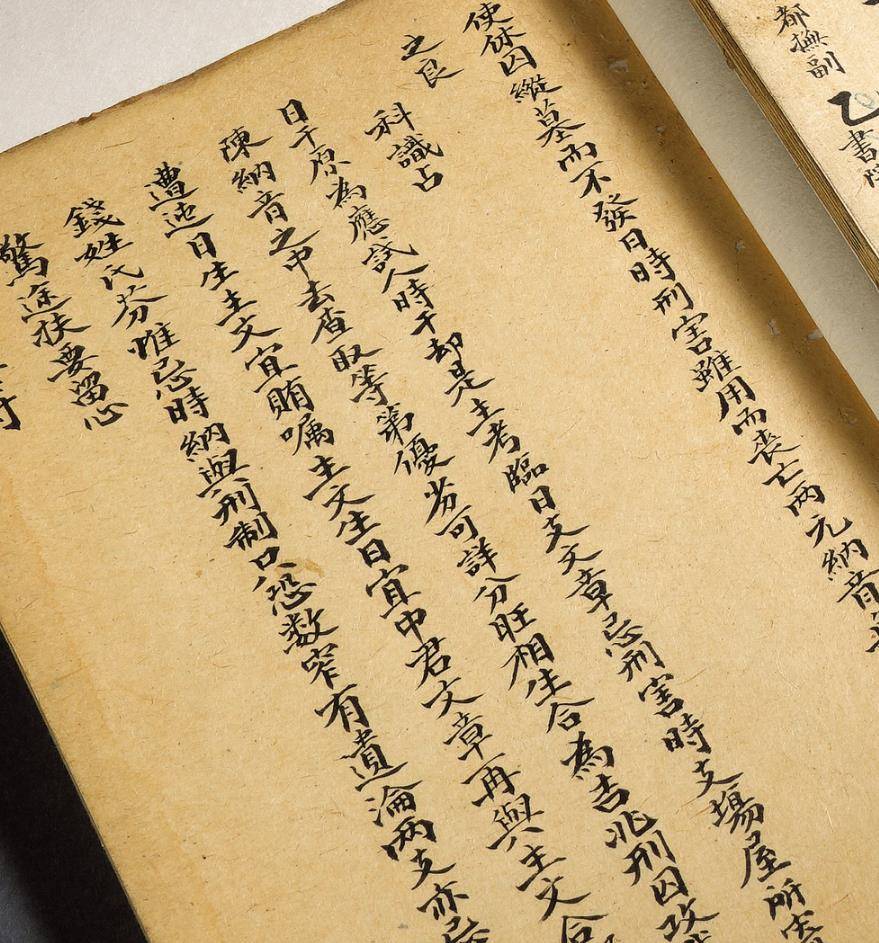 都撫副
乙書院
使休囚縱墓而不發日時刑害雖用而喪亡两元納音
之良
科識占
日干原為應試人時干却是主考臨日支文章忌刑害時支場屋所害
陳納音之中去查取等第優劣可詳分旺相生合為吉兆刑囚攻
遭迍日生主文宜賄嘱主文生日宜中君文章再與主文合
錢姓氏芬惟忌時納與刑制只恐数窄有遺淪两支亦忌
驚途扶要留心